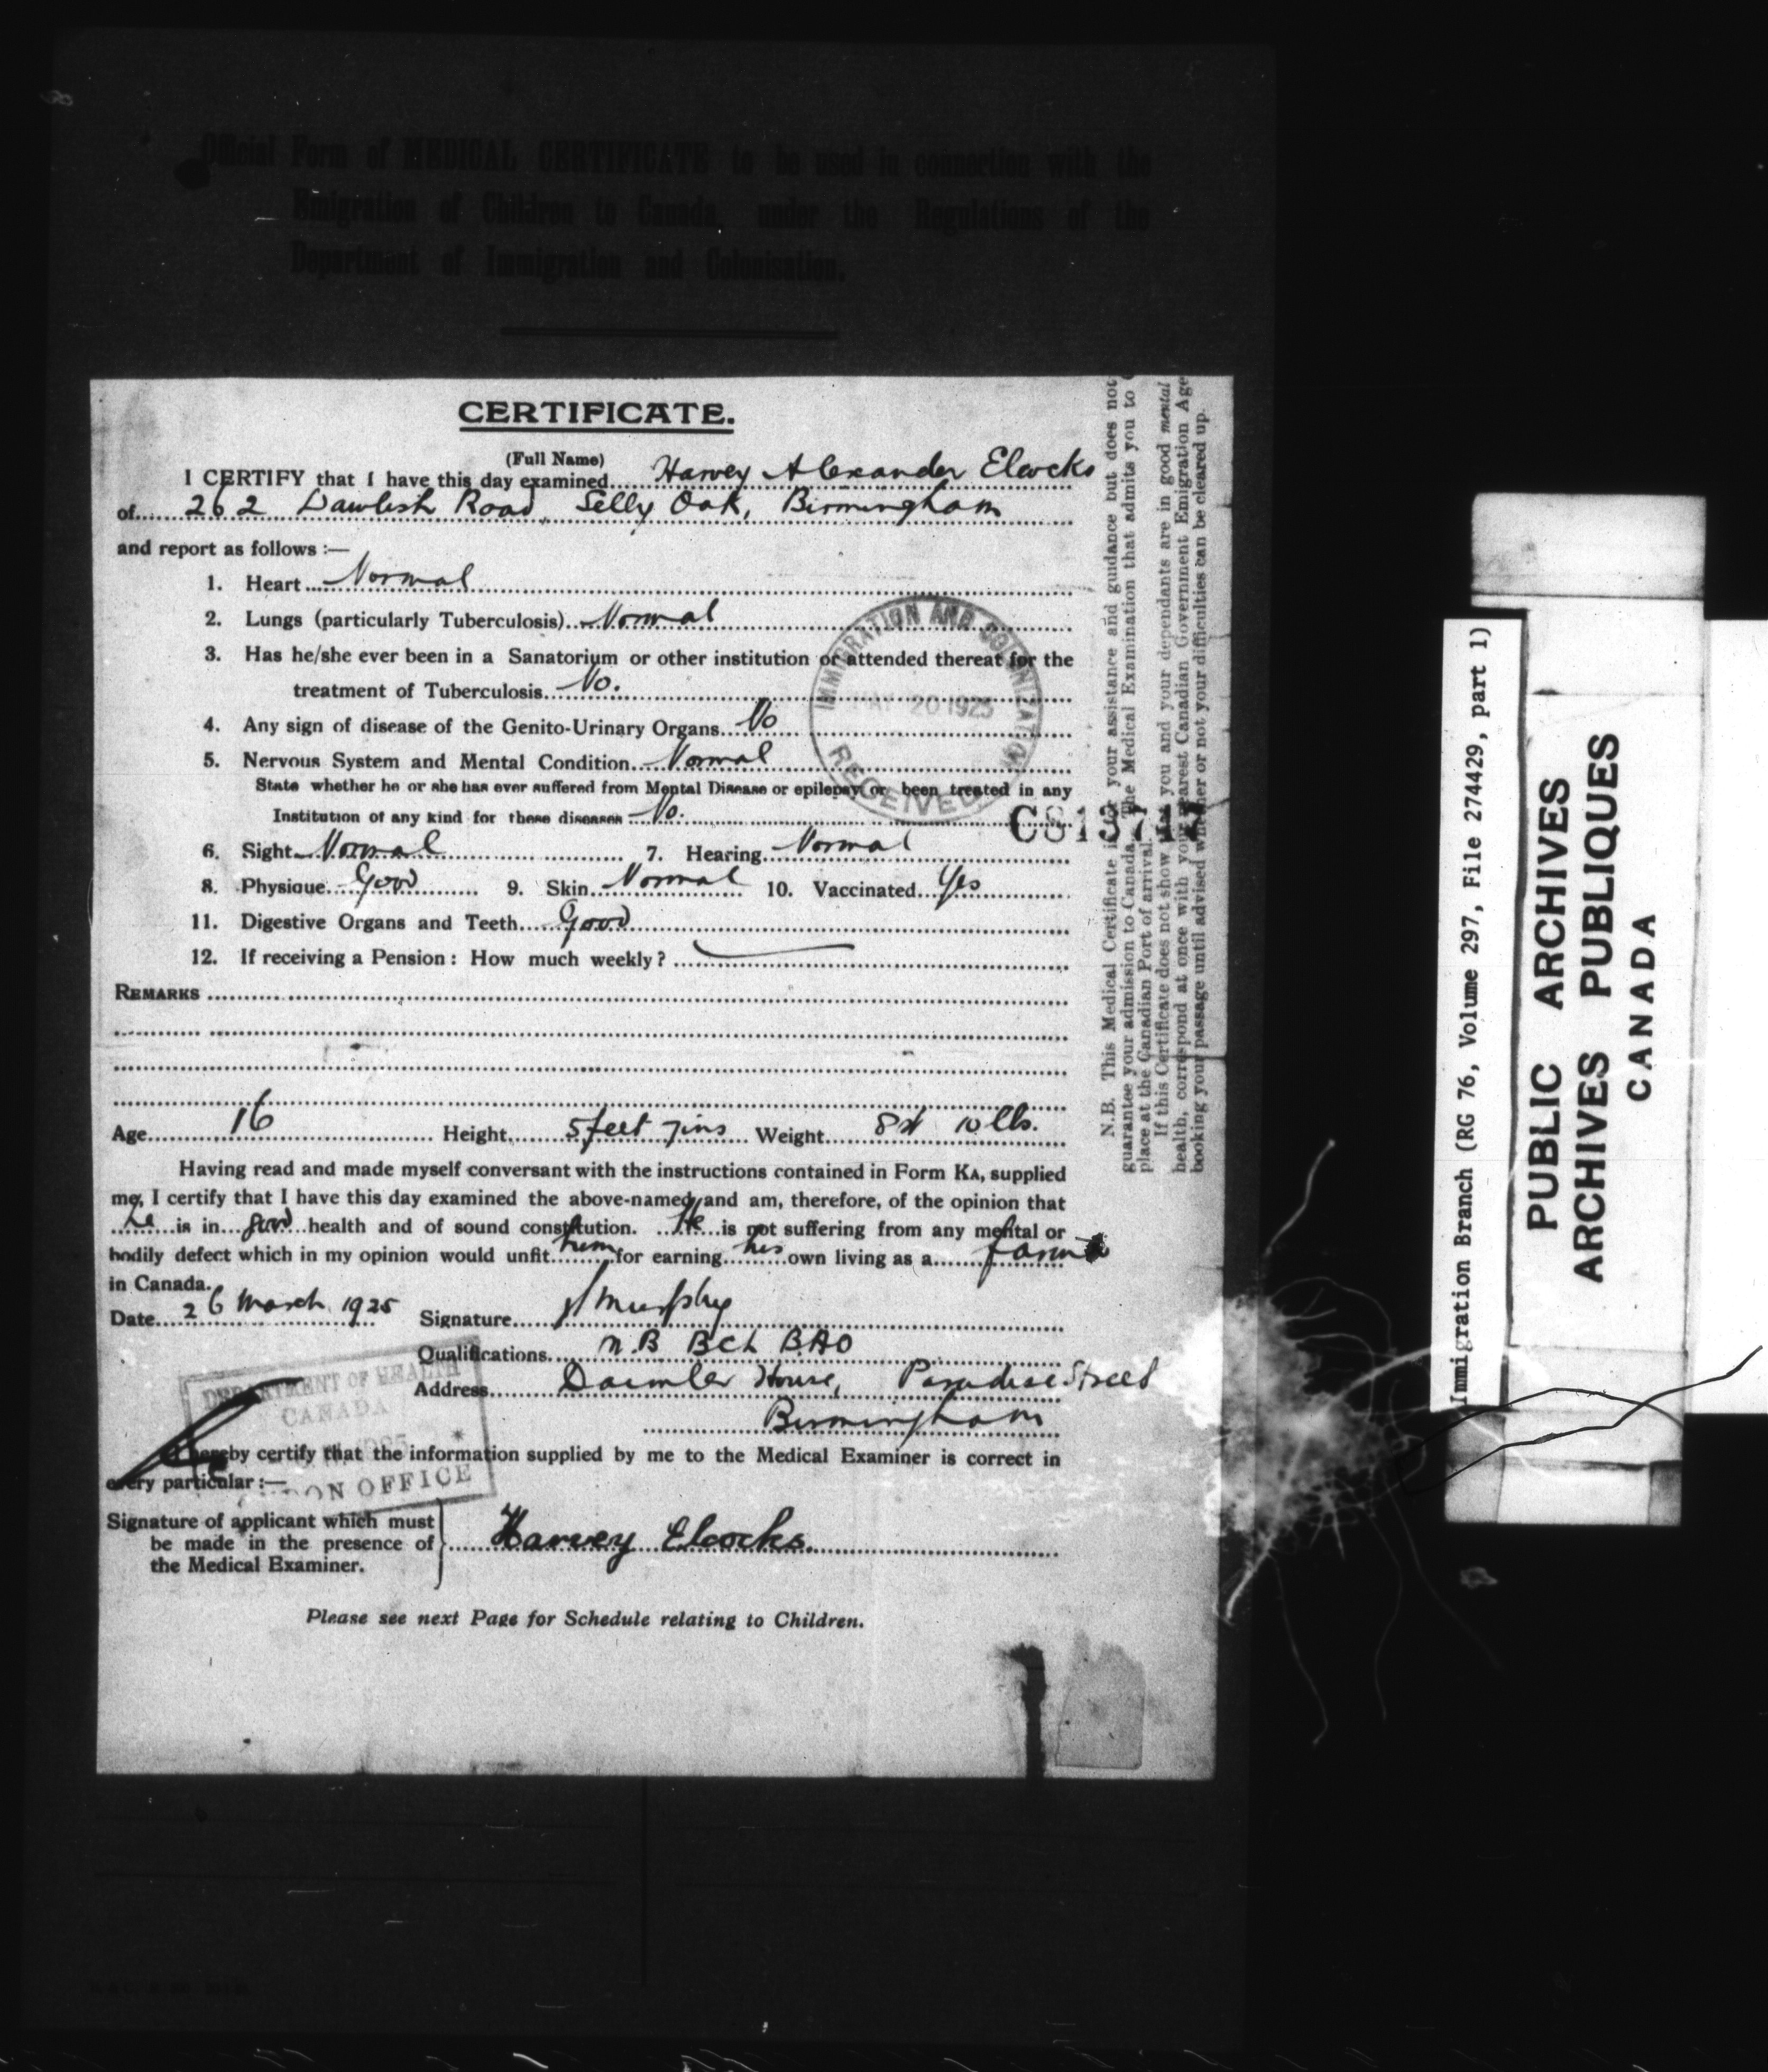 Official Form of MEDICAL CERTIFICATE to be used in connection with the
Emigration of Children to Canada, under the Regulations of the
Department of Immigration and Colonisation.
CERTIFICATE.
(Full Name)
I CERTIFY that I have this day examined Harvey Alexander Elcocks
of 262 Dawlish Road, Selly Oak, Birmingham
and report as follows :—
1. Heart Normal
2. Lungs (particularly Tuberculosis) Normal
3. Has he/she ever been in a Sanatorium or other institution or attended thereat for the
treatment of Tuberculosis No.
4. Any sign of disease of the Genito-Urinary Organs No
5. Nervous System and Mental Condition Normal
State whether he or she has ever suffered from Mental Disease or epilepsy or been treated in any
Institution of any kind for these diseases No.
6. Sight Normal 7. Hearing Normal
8. Physique Good 9. Skin Normal 10. Vaccinated Yes
11. Digestive Organs and Teeth Good
12. If receiving a Pension : How much weekly ?
REMARKS
Age 16 Height 5 feet 7 ins Weight 8 st 10 lbs.
Having read and made myself conversant with the instructions contained in Form KA, supplied
me, I certify that I have this day examined the above-named and am, therefore, of the opinion that
he is in good health and of sound constitution. He is not suffering from any mental or
bodily defect which in my opinion would unfit him for earning his own living as a
in Canada.
Date 26 March 1925 Signature Murphy
Qualifications M.B BCh BAO
Address Daimler House, Paradise Street
Birmingham
I hereby certify that the information supplied by me to the Medical Examiner is correct in
every particular :—
Signature of applicant which must
be made in the presence of
the Medical Examiner.
Harvey Elcocks.
Please see next Page for Schedule relating to Children.
IMMIGRATION AND COLONIZATION
MAY 20 1925
RECEIVED
DEPARTMENT OF HEALTH
CANADA
LONDON OFFICE
N.B. This Medical Certificate is for your assistance and guidance but does not
guarantee your admission to Canada. The Medical Examination that admits you to
place at the Canadian Port of arrival.
If this Certificate does not show that you and your dependants are in good mental
health, correspond at once with your nearest Canadian Government Emigration Age
booking your passage until advised whether or not your difficulties can be cleared up.
Immigration Branch (RG 76, Volume 297, File 274429, part 1)
PUBLIC ARCHIVES
ARCHIVES PUBLIQUES
CANADA